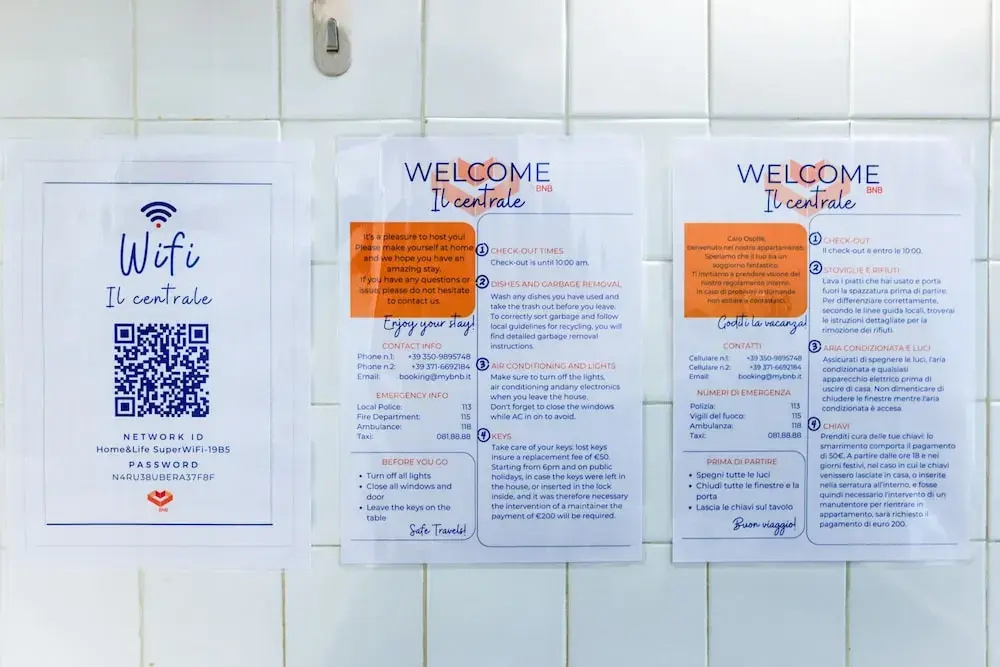 Wifi
Il centrale
NETWORK ID
Home&Life SuperWiFi-19B5
PASSWORD
N4RU38UBERA37F8F
BNB
WELCOME
BNB
Il centrale
It's a pleasure to host you!
Please make yourself at home
and we hope you have an
amazing stay.
If you have any questions or
issue, please do not hesitate
to contact us.
Enjoy your stay!
CONTACT INFO
Phone n.1: +39 350-9895748
Phone n.2: +39 371-6692184
Email: booking@mybnb.it
EMERGENCY INFO
Local Police: 113
Fire Department: 115
Ambulance: 118
Taxi: 081.88.88
BEFORE YOU GO
Turn off all lights
Close all windows and
door
Leave the keys on the
table
Safe Travels!
1 CHECK-OUT TIMES
Check-out is until 10:00 am.
2 DISHES AND GARBAGE REMOVAL
Wash any dishes you have used and
take the trash out before you leave.
To correctly sort garbage and follow
local guidelines for recycling, you will
find detailed garbage removal
instructions.
3 AIR CONDITIONING AND LIGHTS
Make sure to turn off the lights,
air conditioning andany electronics
when you leave the house.
Don't forget to close the windows
while AC in on to avoid.
4 KEYS
Take care of your keys: lost keys
insure a replacement fee of €50.
Starting from 6pm and on public
holidays, in case the keys were left in
the house, or inserted in the lock
inside, and it was therefore necessary
the intervention of a maintainer the
payment of €200 will be required.
WELCOME
BNB
Il centrale
Caro Ospite,
benvenuto nel nostro appartamento.
Speriamo che il tuo sia un
soggiorno fantastico.
Ti invitiamo a prendere visione del
nostro regolamento interno.
In caso di problemi o domande
non esitare a contattarci.
Goditi la vacanza!
CONTATTI
Cellulare n.1: +39 350-9895748
Cellulare n.2: +39 371-6692184
Email: booking@mybnb.it
NUMERI DI EMERGENZA
Polizia: 113
Vigili del fuoco: 115
Ambulanza: 118
Taxi: 081.88.88
PRIMA DI PARTIRE
Spegni tutte le luci
Chiudi tutte le finestre e la
porta
Lascia le chiavi sul tavolo
Buon viaggio!
1 CHECK-OUT
Il check-out è entro le 10:00.
2 STOVIGLIE E RIFIUTI
Lava i piatti che hai usato e porta
fuori la spazzatura prima di partire.
Per differenziare correttamente,
secondo le linee guida locali, troverai
le istruzioni dettagliate per la
rimozione dei rifiuti.
3 ARIA CONDIZIONATA E LUCI
Assicurati di spegnere le luci, l'aria
condizionata e qualsiasi
apparecchio elettrico prima di
uscire di casa. Non dimenticare di
chiudere le finestre mentre l'aria
condizionata è accesa.
4 CHIAVI
Prenditi cura delle tue chiavi: lo
smarrimento comporta il pagamento
di 50€. A partire dalle ore 18 e nei
giorni festivi, nel caso in cui le chiavi
venissero lasciate in casa, o inserite
nella serratura all'interno, e fosse
quindi necessario l'intervento di un
manutentore per rientrare in
appartamento, sarà richiesto il
pagamento di euro 200.